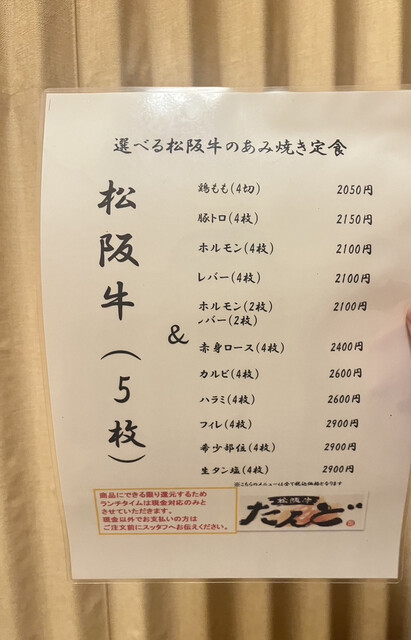 選べる松阪牛のあみ焼き定食
松阪牛(5枚)
&
鶏もも(4切) 2050円
豚トロ(4枚) 2150円
ホルモン(4枚) 2100円
レバー(4枚) 2100円
ホルモン(2枚) 2100円
レバー(2枚)
赤身ロース(4枚) 2400円
カルビ(4枚) 2600円
ハラミ(4枚) 2600円
フィレ(4枚) 2900円
希少部位(4枚) 2900円
生タン塩(4枚) 2900円
※こちらのメニューは全て税込価格となります
商品にできる限り還元するため
ランチタイムは現金対応のみと
させていただきます。
現金以外でお支払いの方は
ご注文前にスッタフへお伝えください。
松阪牛
たんど